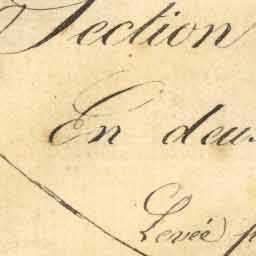 Section
En deu
Levée p